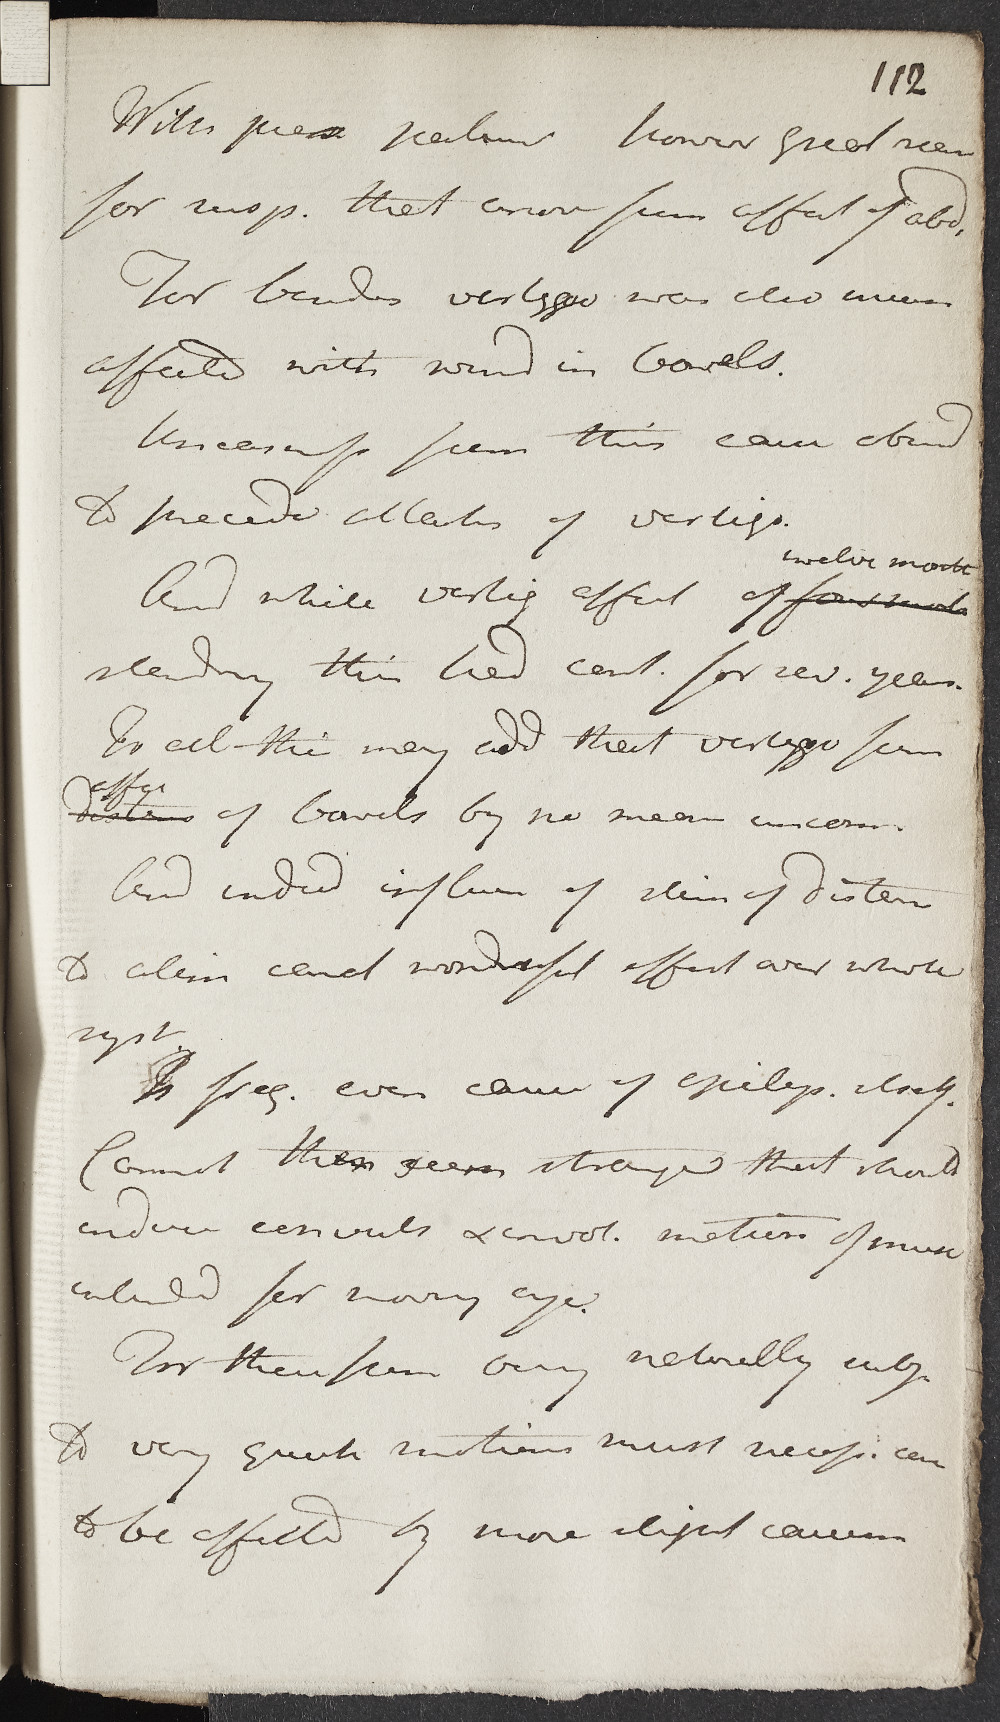 112
With pres patient however great reas
for susp. that arose from affect of abd.
For besides vertigo was also much
affected with wind in bowels.
Uneasiness from this cause observd
to precede attacks of vertigo.
twelve month
And while vertig affect of four month
standing this had cont. for sev. years.
To all this may add that vertigo from
affec
distens of bowels by no mean uncom.
And indeed influen of stim of disten
to alim canal wonderful effect over whole
syst.
Is freq. even cause of epileps. itself.
Cannot then seem strange that should
induce convuls & invol. motions of musc
intended for moving eye.
For these from being naturally subj.
to very quick motions must necess. com
to be affected by more slight causes